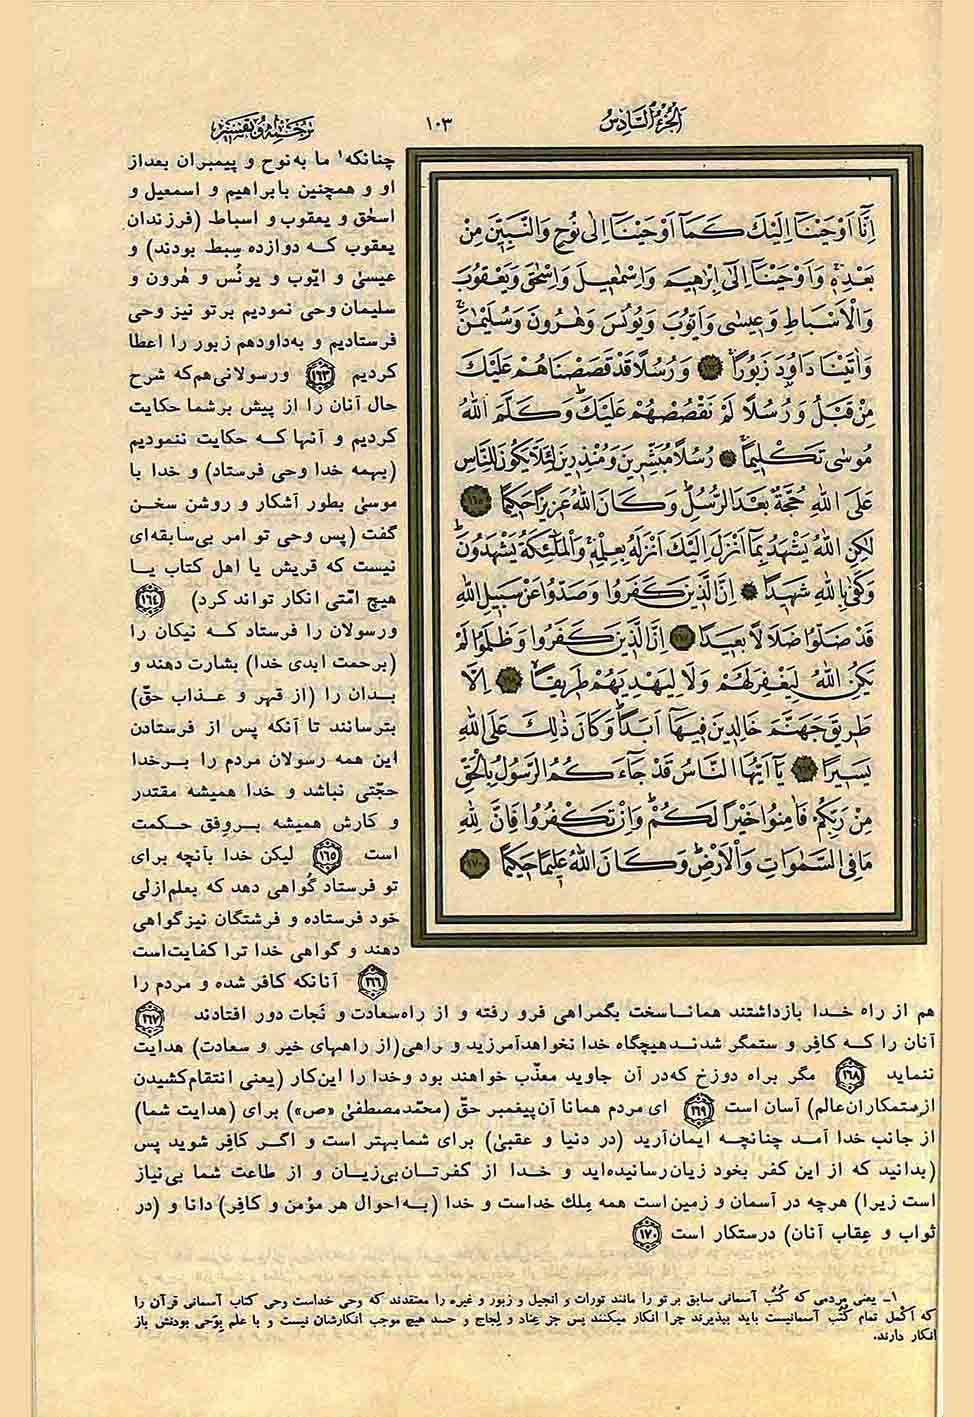 الجزء السادس
١٠٣
ترجمه و تفسیر
اِنَّٓا اَوْحَيْنَٓا اِلَيْكَ كَمَٓا اَوْحَيْنَٓا اِلٰى نُوحٍ وَالنَّبِيّٖنَ مِنْ
بَعْدِهٖ وَاَوْحَيْنَٓا اِلٰٓى اِبْرٰهٖيمَ وَاِسْمٰعٖيلَ وَاِسْحٰقَ وَيَعْقُوبَ
وَالْاَسْبَاطِ وَعٖيسٰى وَاَيُّوبَ وَيُونُسَ وَهٰرُونَ وَسُلَيْمٰنَ
وَاٰتَيْنَا دَاوُدَ زَبُورًا ١٦٣ وَرُسُلًا قَدْ قَصَصْنَاهُمْ عَلَيْكَ
مِنْ قَبْلُ وَرُسُلًا لَمْ نَقْصُصْهُمْ عَلَيْكَ وَكَلَّمَ اللّٰهُ
مُوسٰى تَكْلٖيمًا رُسُلًا مُبَشِّرٖينَ وَمُنْذِرٖينَ لِئَلَّا يَكُونَ لِلنَّاسِ
عَلَى اللّٰهِ حُجَّةٌ بَعْدَ الرُّسُلِ وَكَانَ اللّٰهُ عَزٖيزًا حَكٖيمًا ١٦٥
لٰكِنِ اللّٰهُ يَشْهَدُ بِمَٓا اَنْزَلَ اِلَيْكَ اَنْزَلَهُ بِعِلْمِهٖ وَالْمَلٰٓئِكَةُ يَشْهَدُونَ
وَكَفٰى بِاللّٰهِ شَهٖيدًا اِنَّ الَّذٖينَ كَفَرُوا وَصَدُّوا عَنْ سَبٖيلِ اللّٰهِ
قَدْ ضَلُّوا ضَلَالًا بَعٖيدًا ١٦٧ اِنَّ الَّذٖينَ كَفَرُوا وَظَلَمُوا لَمْ
يَكُنِ اللّٰهُ لِيَغْفِرَ لَهُمْ وَلَا لِيَهْدِيَهُمْ طَرٖيقًا ١٦٨ اِلَّا
طَرٖيقَ جَهَنَّمَ خَالِدٖينَ فٖيهَٓا اَبَدًا وَكَانَ ذٰلِكَ عَلَى اللّٰهِ
يَسٖيرًا ١٦٩ يَٓا اَيُّهَا النَّاسُ قَدْ جَٓاءَكُمُ الرَّسُولُ بِالْحَقِّ
مِنْ رَبِّكُمْ فَاٰمِنُوا خَيْرًا لَكُمْ وَاِنْ تَكْفُرُوا فَاِنَّ لِلّٰهِ
مَا فِي السَّمٰوَاتِ وَالْاَرْضِ وَكَانَ اللّٰهُ عَلٖيمًا حَكٖيمًا ١٧٠
چنانکه۱ ما به نوح و پیمبران بعداز
او و همچنین بابراهیم و اسمعیل و
اسحٰق و یعقوب و اسباط (فرزندان
یعقوب که دوازده سِبط بودند) و
عیسیٰ و ایّوب و یونُس و هٰرون و
سلیمان وحی نمودیم برتو نیز وحی
فرستادیم و به‌داودهم زبور را اعطا
کردیم ۱۶۳ ورسولانی هم‌که شرح
حال آنان را از پیش برشما حکایت
کردیم و آنها که حکایت ننمودیم
(بهمه خدا وحی فرستاد) و خدا با
موسیٰ بطور آشکار و روشن سخن
گفت (پس وحی تو امر بی‌سابقه‌ای
نیست که قریش یا اهل کتاب یا
هیچ امّتی انکار تواند کرد) ۱۶۴
ورسولان را فرستاد که نیکان را
(برحمت ابدی خدا) بشارت دهند و
بدان را (از قهر و عذاب حقّ)
بترسانند تا آنکه پس از فرستادن
این همه رسولان مردم را برخدا
حجّتی نباشد و خدا همیشه مقتدر
و کارش همیشه بروِفق حکمت
است ۱۶۵ لیکن خدا بآنچه برای
تو فرستاد گُواهی دهد که بعلم‌ازلی
خود فرستاده و فرشتگان نیزگواهی
دهند و گواهی خدا ترا کفایت‌است
۱۶۶ آنانکه کافر شده و مردم را
هم از راه خدا بازداشتند همانا سخت بگمراهی فرو رفته و از راه‌سعادت و نَجات دور افتادند ۱۶۷
آنان را که کافِر و ستمگر شدند هیچگاه خدا نخواهدآمرزید و راهی(از راههای خیر و سعادت) هدایت
ننماید ۱۶۸ مگر براه دوزخ که‌در آن جاوید معذّب خواهند بود وخدا را این‌کار (یعنی انتقام‌کشیدن
ازستمکاران‌عالم) آسان است ۱۶۹ ای مردم همانا آن‌پیغمبر حقّ (محمّدمصطفیٰ «ص») برای (هدایت شما)
از جانب خدا آمد چنانچه ایمان‌آرید (در دنیا و عقبیٰ) برای شمابهتر است و اگر کافِر شوید پس
(بدانید که از این کفر بخود زیان‌رسانیده‌اید و خدا از کفرتان‌بی‌زیان و از طاعت شما بی‌نیاز
است زیرا) هرچه در آسمان و زمین‌است همه مِلك خداست و خدا (به‌احوال هر مؤمن و کافِر) دانا و (در
ثواب و عِقاب آنان) درستکار است ۱۷۰
۱ـ یعنی مردمی که کُتُب آسمانی سابق بر تو را مانند تورات و انجیل و زبور و غیره را معتقدند که وحی خداست وحی کتاب آسمانی قرآن را
که اَکْمل تمام کُتُب آسمانیست باید بپذیرند چرا انکار میکنند پس جز عِناد و لِجاج و حسد هیچ موجب انکارشان نیست و با علم بِوَحی بودنش باز
انکار دارند.